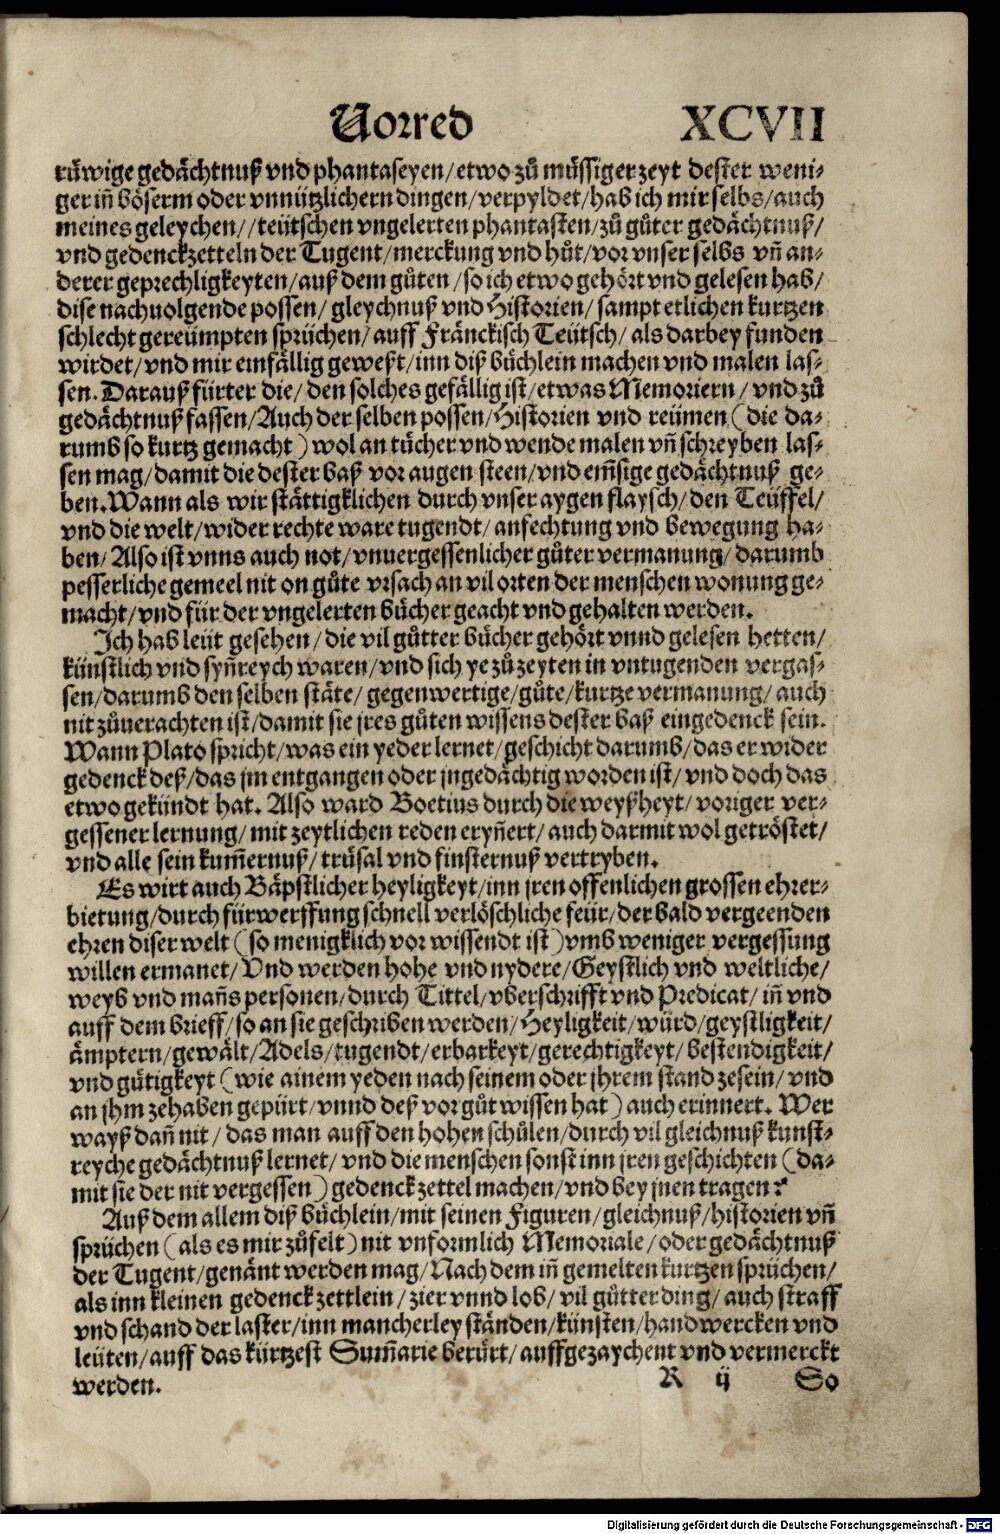 Vorred XCVII
rüwige gedächtnuß vnd phantaseyen/etwo zů müssiger zeyt dester weni⸗
ger iñ böserm oder vnnützlichern dingen/verpyldet/hab ich mir selbs/auch
meines geleychen//teütschen vngelerten phantasten/zů gůter gedächtnuß/
vnd gedenckzetteln der Tugent/merckung vnd hůt/vor vnser selbs vñ an⸗
derer geprechligkeyten/auß dem gůten/so ich etwo gehört vnd gelesen hab/
dise nachuolgende possen/gleychnuß vnd Historien/sampt etlichen kurtzen
schlecht gereümpten sprüchen/auff Fränckisch Teütsch/als darbey funden
wirdet/vnd mir einfällig geweßt/inn diß büchlein machen vnd malen las⸗
sen. Darauß fürter die/den solches gefällig ist/etwas Memoriern/vnd zů
gedächtnuß fassen/Auch der selben possen/Historien vnd reümen (die da⸗
rumb so kurtz gemacht) wol an tücher vnd wende malen vñ schreyben las⸗
sen mag/damit die dester baß vor augen steen/vnd em̃sige gedächtnuß ge⸗
ben. Wann als wir stättigklichen durch vnser aygen flaysch/den Teüffel/
vnd die welt/wider rechte ware tugendt/anfechtung vnd bewegung ha⸗
ben/Also ist vnns auch not/vnuergessenlicher gůter vermanung/darumb
pesserliche gemeel nit on gůte vrsach an vil orten der menschen wonung ge⸗
macht/vnd für der vngelerten bücher geacht vnd gehalten werden.
Ich hab leüt gesehen/die vil gůtter bücher gehört vnnd gelesen hetten/
künstlich vnd syñreych waren/vnd sich ye zů zeyten in vntugenden vergas⸗
sen/darumb den selben stäte/gegenwertige/gůte/kurtze vermanung/auch
nit zůuerachten ist/damit sie jres gůten wissens dester baß eingedenck sein.
Wann Plato spricht/was ein yeder lernet/geschicht darumb/das er wider
gedenck deß/das jm entgangen oder jngedächtig worden ist/vnd doch das
etwo gekündt hat. Also ward Boetius durch die weyßheyt/voriger ver⸗
gessener lernung/mit zeytlichen reden eryñert/auch darmit wol getröstet/
vnd alle sein kum̃ernuß/trůsal vnd finsternuß vertryben.
Es wirt auch Bäpstlicher heyligkeyt/inn jren offenlichen grossen ehrer⸗
bietung/durch fürwerffung schnell verlöschliche feür/der bald vergeenden
ehren diser welt (so menigklich vor wissendt ist) vmb weniger vergessung
willen ermanet/Vnd werden hohe vnd nydere/Geystlich vnd weltliche/
weyb vnd mañs personen/durch Tittel/vberschrifft vnd Predicat/iñ vnd
auff dem brieff/so an sie geschriben werden/Heyligkeit/würd/geystligkeit/
ämptern/gewält/Adels/tugendt/erbarkeyt/gerechtigkeyt/bestendigkeit/
vnd gütigkeyt (wie ainem yeden nach seinem oder jhrem stand zesein/vnd
an jhm zehaben gepürt/vnnd deß vor gůt wissen hat) auch erinnert. Wer
wayß dañ nit/das man auff den hohen schůlen/durch vil gleichnuß kunst⸗
reyche gedächtnuß lernet/vnd die menschen sonst inn jren geschichten (da⸗
mit sie der nit vergessen) gedenckzettel machen/vnd bey jnen tragen?
Auß dem allem diß büchlein/mit seinen Figuren/gleichnuß/historien vñ
sprüchen (als es mir zůfelt) nit vnformlich Memoriale/oder gedächtnuß
der Tugent/genänt werden mag/Nach dem iñ gemelten kurtzen sprüchen/
als inn kleinen gedenckzettlein/zier vnnd lob/vil gůtter ding/auch straff
vnd schand der laster/inn mancherley ständen/künsten/handwercken vnd
leüten/auff das kürtzest Sum̃arie berürt/auffgezaychent vnd vermerckt
werden. R ij So
Digitalisierung gefördert durch die Deutsche Forschungsgemeinschaft - DFG